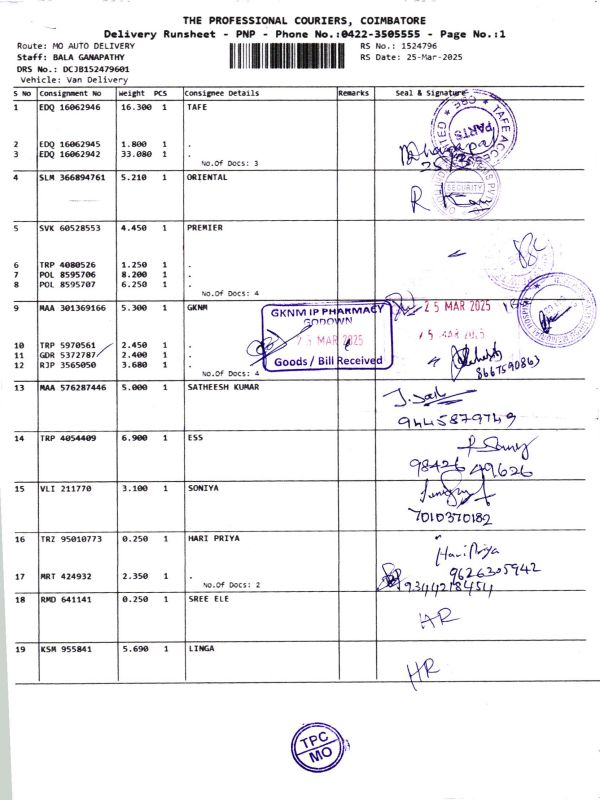 THE PROFESSIONAL COURIERS, COIMBATORE
Delivery Runsheet - PNP - Phone No.:0422-3505555 - Page No.:1
Route: MO AUTO DELIVERY RS No.: 1524796
Staff: BALA GANAPATHY RS Date: 25-Mar-2025
DRS No.: DCJB152479601
Vehicle: Van Delivery
S No Consignment No Weight PCS Consignee Details Remarks Seal & Signature
1 EDQ 16062946 16.300 1 TAFE
2 EDQ 16062945 1.800 1 .
3 EDQ 16062942 33.080 1 .
No.Of Docs: 3
PARTS
4 SLM 366894761 5.210 1 ORIENTAL
SECURITY
5 SVK 60528553 4.450 1 PREMIER
6 TRP 4080526 1.250 1 .
7 POL 8595706 8.200 1 .
8 POL 8595707 6.250 1 .
No.Of Docs: 4
9 MAA 301369166 5.300 1 GKNM
GKNM IP PHARMACY
GODOWN
25 MAR 2025
Goods / Bill Received
25 MAR 2025
10 TRP 5970561 2.450 1 .
11 GDR 5372787 2.400 1 .
12 RJP 3565050 3.680 1 .
No.Of Docs: 4
8667590863
13 MAA 576287446 5.000 1 SATHEESH KUMAR
9445879749
14 TRP 4054409 6.900 1 ESS
98426 49626
15 VLI 211770 3.100 1 SONIYA
7010370182
16 TRZ 95010773 0.250 1 HARI PRIYA
Hari Priya
9626305942
17 MRT 424932 2.350 1 .
No.Of Docs: 2
9344218454
18 RMD 641141 0.250 1 SREE ELE
HR
19 KSM 955841 5.690 1 LINGA
HR
TPC
MO